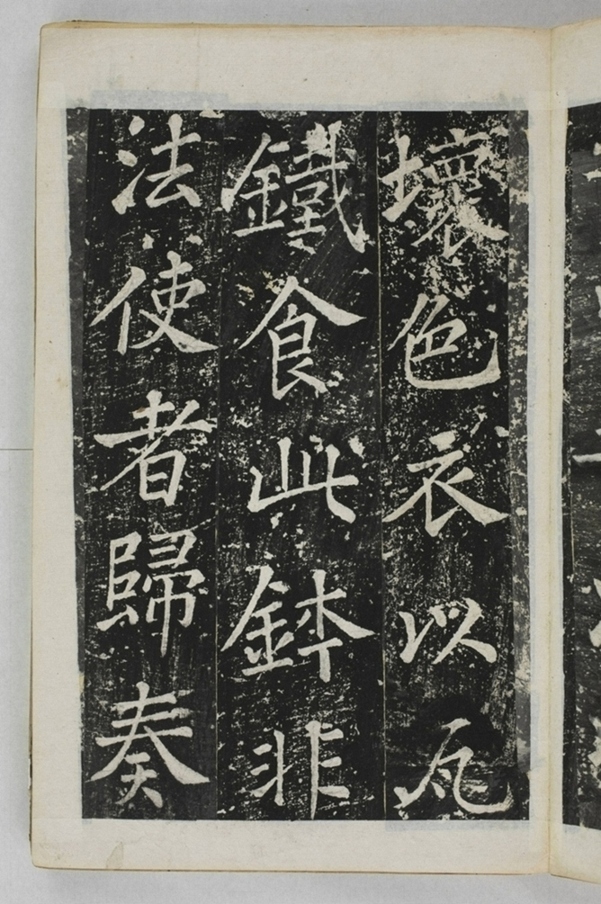 壞色衣以瓦
鐵食此鉢非
法使者歸奏